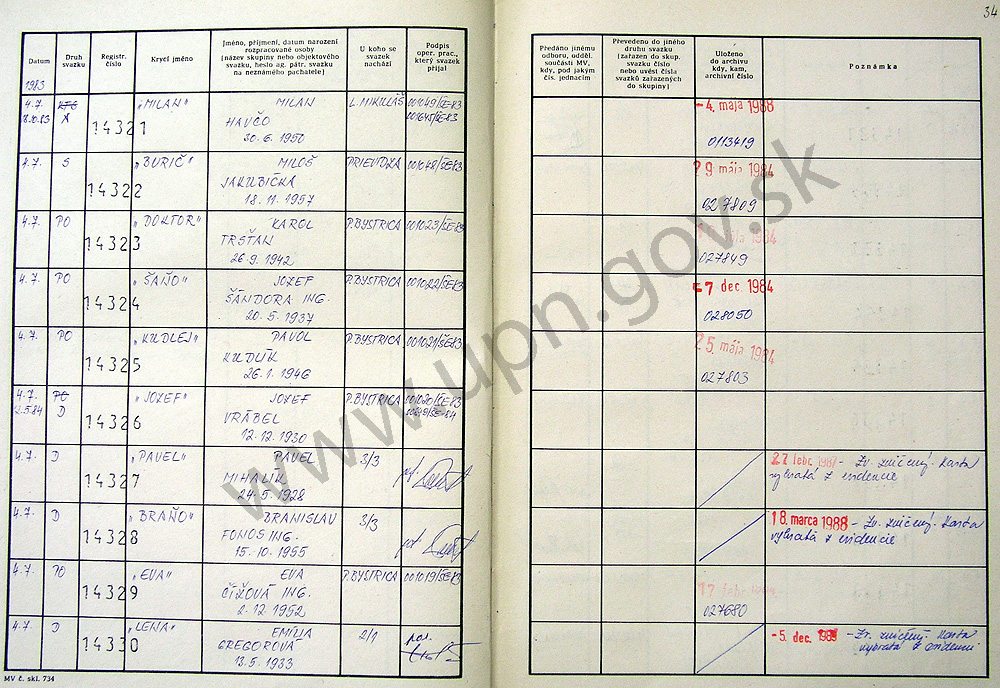 34
Datum
Druh svazku
Registr. číslo
Krycí jméno
Jméno, příjmení, datum narození
rozpracované osoby
(název skupiny nebo objektového
svazku, heslo ag. pátr. svazku
na neznámého pachatele)
U koho se
svazek
nachází
Podpis
oper. prac.,
který svazek
přijal
Předáno jinému
odboru, odděl.
součásti MV,
kdy, pod jakým
čís. jednacím
Převedeno do jiného
druhu svazku
(zařazen do skup.
svazku číslo
nebo uvést čísla
svazků zařazených
do skupiny)
Uloženo
do archivu
kdy, kam,
archivní číslo
Poznámka
1983
4.7. KTS „MILAN" MILAN L. MIKULÁŠ 001049/ŠE-83 -4. mája 1988
18.10.83 A 14321 HAVČO 001645/SE-83
30.6. 1950 0113419
4.7. S „BURIČ" MILOŠ PRIEVIDZA 001048/ŠE-83 29 mája 1984
14322 JAKUBIČKA
18.11.1957 027809
4.7. PO „DOKTOR" KAROL P. BYSTRICA 001023/ŠE-83
14323 TRSŤAN 1984
26.9.1942 027849
4.7. PO „ŠAŇO" JOZEF P. BYSTRICA 001022/ŠE-83 -7 dec 1984
14324 ŠÁNDORA ING.
20.5.1937 028050
4.7. PO „KUDLEJ" PAVOL P. BYSTRICA 001021/ŠE-83 25 mája 1984
14325 KUDLÍK
26.1.1946 027803
4.7. PO „JOZEF" JOZEF P. BYSTRICA 001020/ŠE-83
12.5.84 D 14326 VRÁBEL
12.12.1930
4.7. D „PAVEL" PAVEL 3/3 27 febr. 1987 - Zv. zničený. Karta
14327 MIHALÍK vybratá z evidencie
24.5.1928
4.7. D „BRAŇO" BRANISLAV 3/3 18. marca 1988 - Zv. zničený. Karta
14328 FONOS ING. vybratá z evidencie
15.10.1955
4.7. PO „EVA" EVA P. BYSTRICA 001019/ŠE-83 17 febr.
14329 ČÍŽOVÁ ING. 027680
2.12.1952
4.7. D „LENA" EMÍLIA 2/1 -5. dec. - Zv. zničený. Karta
14330 GREGOROVÁ vybratá z evidencie
13.5.1933
MV č. skl. 734
www.upn.gov.sk